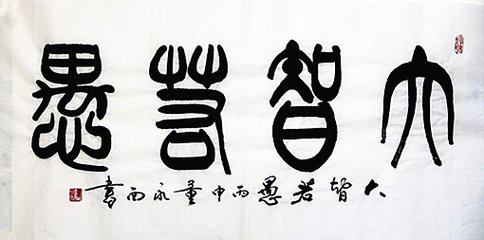 大智若愚
大智若愚丙申董永西書